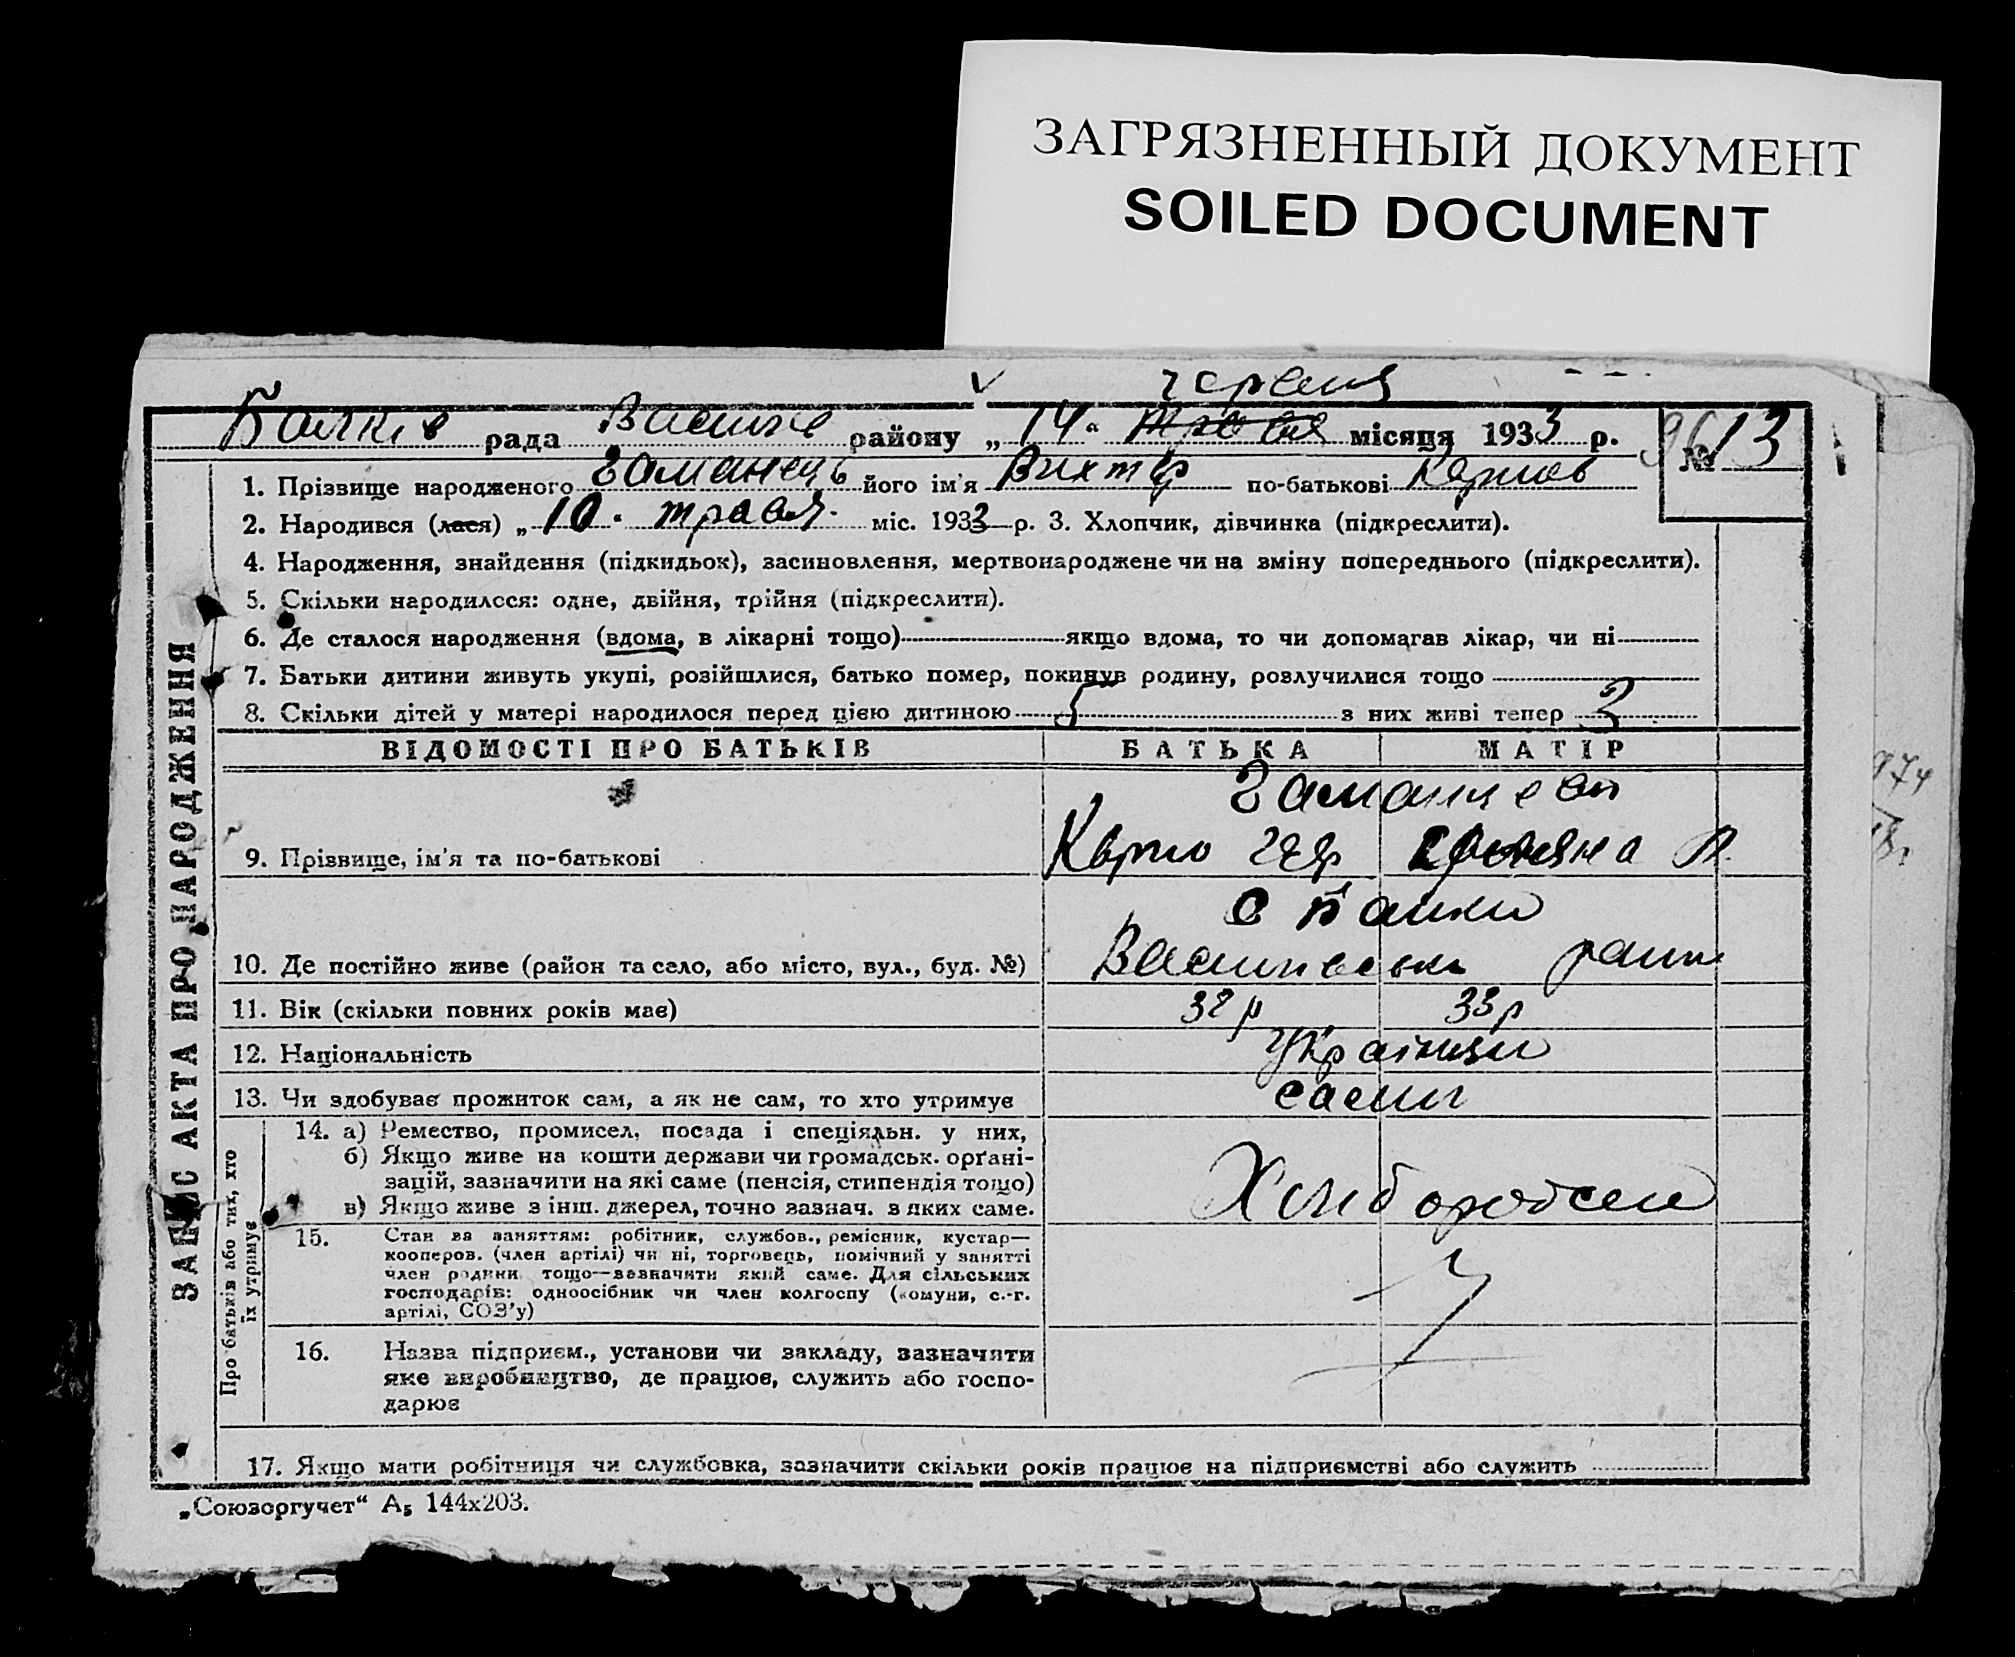 ЗАГРЯЗНЕННЫЙ ДОКУМЕНТ
SOILED DOCUMENT
червня
Балків рада Василів району „14“ травня місяця 1933 р. 96 № 13
1. Прізвище народженого Гаманець його ім'я Вихтір по-батькові Карпов
2. Народився (лася) „10“ травя. міс. 1933 р. 3. Хлопчик, дівчинка (підкреслити).
4. Народження, знайдення (підкидьок), засиновлення, мертвонароджене чи на зміну попереднього (підкреслити).
5. Скільки народилося: одне, двійня, трійня (підкреслити).
6. Де сталося народження (вдома, в лікарні тощо) якщо вдома, то чи допомагав лікар, чи ні
7. Батьки дитини живуть укупі, розійшлися, батько помер, покинув родину, розлучилися тощо
8. Скільки дітей у матері народилося перед цією дитиною 5 з них живі тепер 3
ЗАПИС АКТА ПРО НАРОДЖЕННЯ
ВІДОМОСТІ ПРО БАТЬКІВ БАТЬКА МАТІР
9. Прізвище, ім'я та по-батькові Карпо
с Балки
10. Де постійно живе (район та село, або місто, вул., буд. №) Василівськ
11. Вік (скільки повних років має) 32 р 33 р
12. Національність Українци
13. Чи здобуває прожиток сам, а як не сам, то хто утримує сами
Про батьків або тих, хто їх утримує
14. а) Ремество, промисел, посада і спеціяльн. у них,
б) Якщо живе на кошти держави чи громадськ. орґані-
зацій, зазначити на які саме (пенсія, стипендія тощо)
в) Якщо живе з інш. джерел, точно зазнач. з яких саме.
15. Стан за заняттям: робітник, службов., ремісник, кустар—
кооперов. (член артілі) чи ні, торговець, помічний у занятті
член родини тощо—зазначити який саме. Для сільських
господарів: одноосібник чи член колгоспу (комуни, с.-г.
артілі, СОЗ'у)
16. Назва підприєм., установи чи закладу, зазначити
яке виробництво, де працює, служить або госпо-
дарює
17. Якщо мати робітниця чи службовка, зазначити скільки років працює на підприємстві або служить
„Союзоргучет“ А5 144х203.